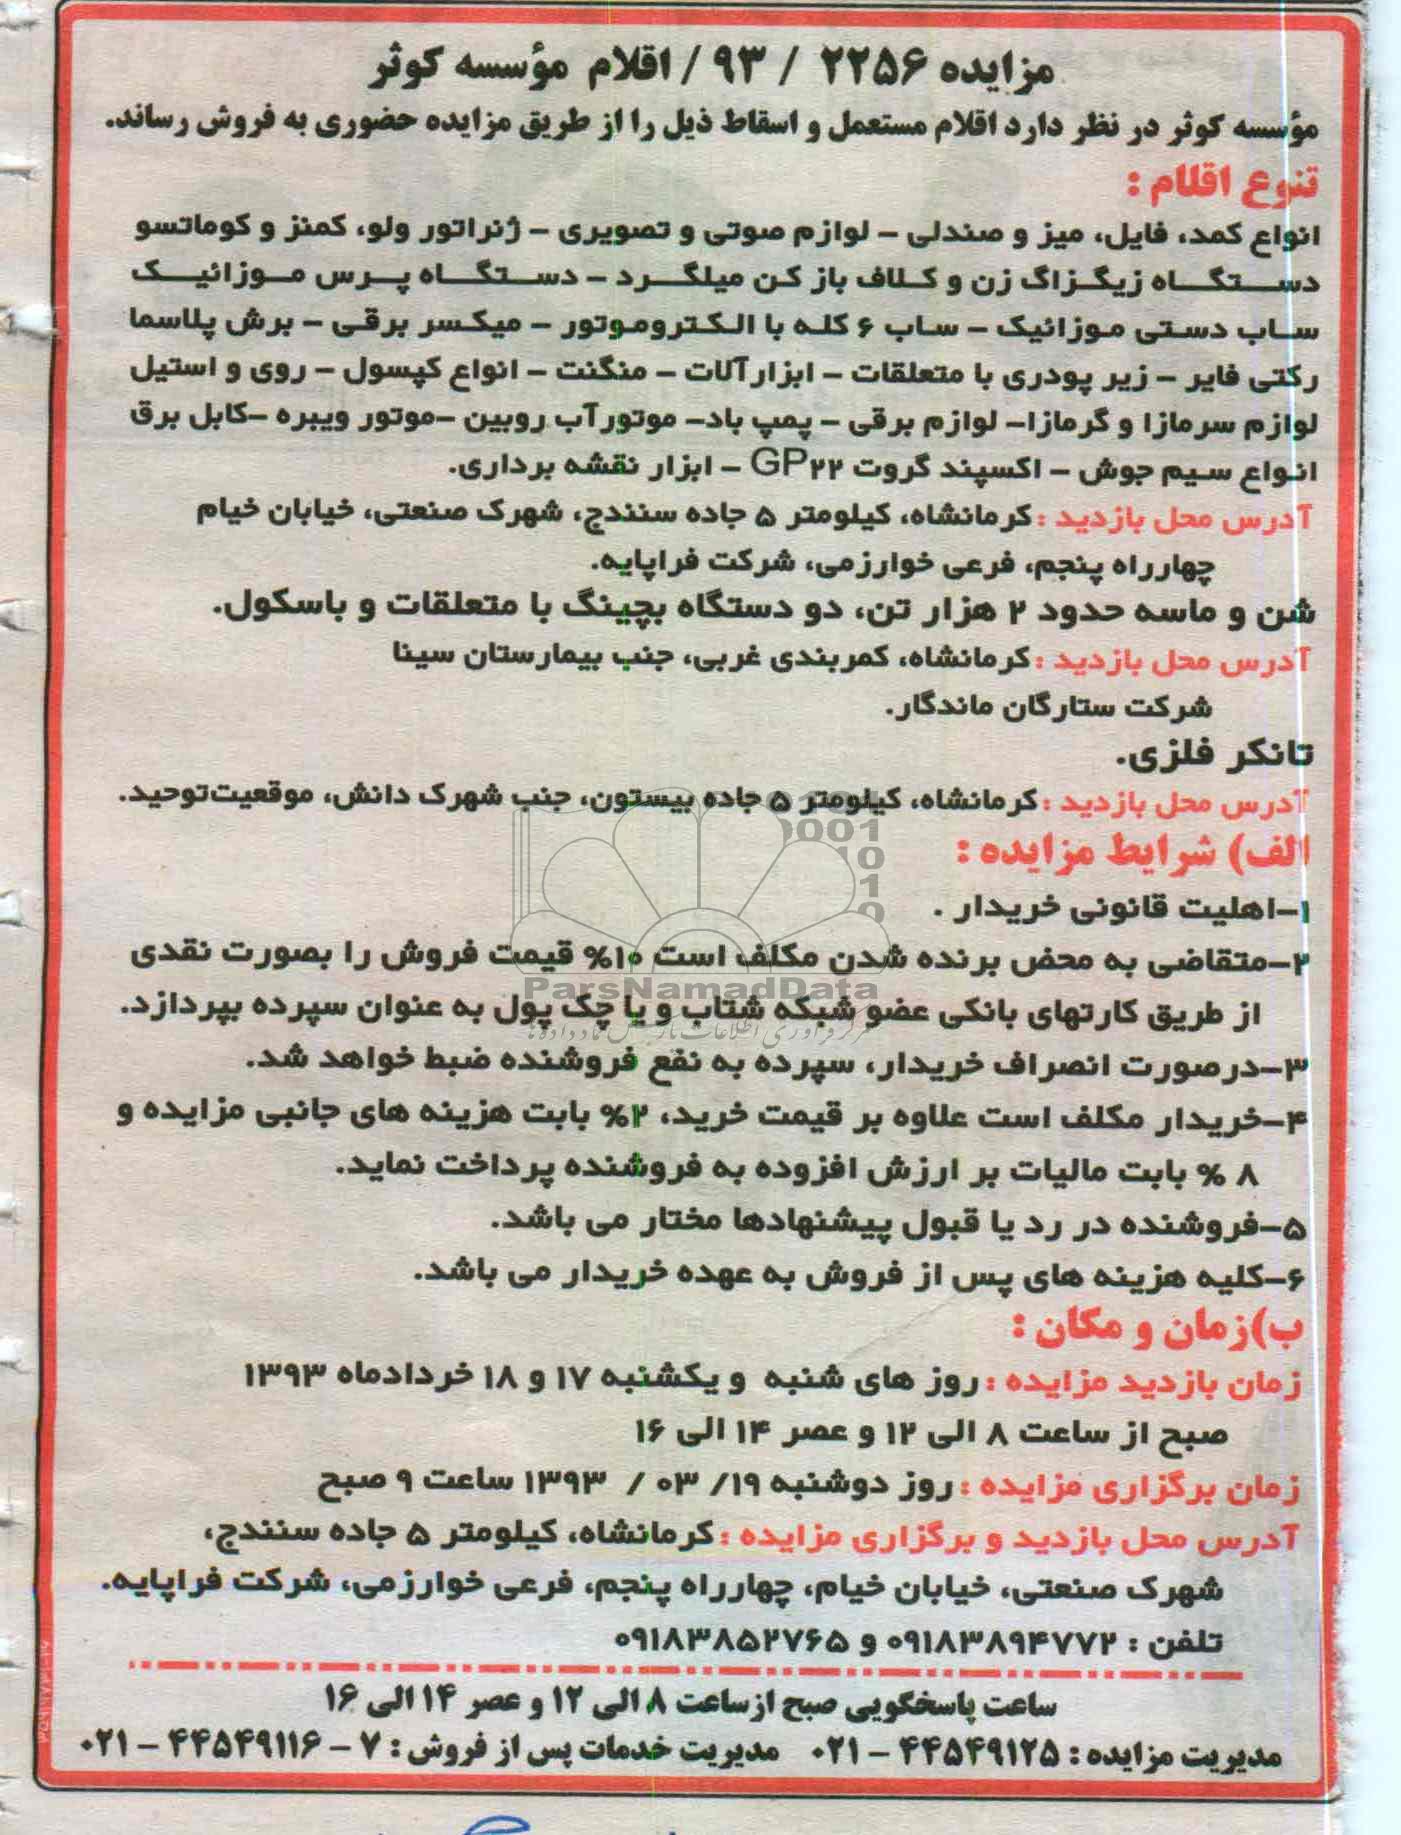 مزایده ۲۲۵۶ / ۹۳ / اقلام مؤسسه کوثر
مؤسسه کوثر در نظر دارد اقلام مستعمل و اسقاط ذیل را از طریق مزایده حضوری به فروش رساند.
تنوع اقلام :
انواع کمد، فایل، میز و صندلی - لوازم صوتی و تصویری - ژنراتور ولو، کمنز و کوماتسو
دستگاه زیگزاگ زن و کلاف باز کن میلگرد - دستگاه پرس موزائیک
ساب دستی موزائیک - ساب ۶ کله با الکتروموتور - میکسر برقی - برش پلاسما
رکتی فایر - زیر پودری با متعلقات - ابزارآلات - منگنت - انواع کپسول - روی و استیل
لوازم سرمازا و گرمازا- لوازم برقی - پمپ باد- موتورآب روبین -موتور ویبره -کابل برق
انواع سیم جوش - اکسپند گروت GP۲۲ - ابزار نقشه برداری.
آدرس محل بازدید : کرمانشاه، کیلومتر ۵ جاده سنندج، شهرک صنعتی، خیابان خیام
چهارراه پنجم، فرعی خوارزمی، شرکت فراپایه.
شن و ماسه حدود ۲ هزار تن، دو دستگاه بچینگ با متعلقات و باسکول.
آدرس محل بازدید : کرمانشاه، کمربندی غربی، جنب بیمارستان سینا
شرکت ستارگان ماندگار.
تانکر فلزی.
آدرس محل بازدید : کرمانشاه، کیلومتر ۵ جاده بیستون، جنب شهرک دانش، موقعیت‌توحید.
الف) شرایط مزایده :
۱-اهلیت قانونی خریدار .
۲-متقاضی به محض برنده شدن مکلف است ۱۰% قیمت فروش را بصورت نقدی
از طریق کارتهای بانکی عضو شبکه شتاب و یا چک پول به عنوان سپرده بپردازد.
ParsNamadData
۳-درصورت انصراف خریدار، سپرده به نفع فروشنده ضبط خواهد شد.
۴-خریدار مکلف است علاوه بر قیمت خرید، ۲% بابت هزینه های جانبی مزایده و
۸ % بابت مالیات بر ارزش افزوده به فروشنده پرداخت نماید.
۵-فروشنده در رد یا قبول پیشنهادها مختار می باشد.
۶-کلیه هزینه های پس از فروش به عهده خریدار می باشد.
ب)زمان و مکان :
زمان بازدید مزایده : روز های شنبه و یکشنبه ۱۷ و ۱۸ خردادماه ۱۳۹۳
صبح از ساعت ۸ الی ۱۲ و عصر ۱۴ الی ۱۶
زمان برگزاری مزایده : روز دوشنبه ۱۹/ ۰۳ / ۱۳۹۳ ساعت ۹ صبح
آدرس محل بازدید و برگزاری مزایده : کرمانشاه، کیلومتر ۵ جاده سنندج،
شهرک صنعتی، خیابان خیام، چهارراه پنجم، فرعی خوارزمی، شرکت فراپایه.
تلفن : ۰۹۱۸۳۸۹۴۷۷۲ و ۰۹۱۸۳۸۵۲۷۶۵
ساعت پاسخگویی صبح ازساعت ۸ الی ۱۲ و عصر ۱۴ الی ۱۶
مدیریت مزایده : ۴۴۵۴۹۱۲۵ - ۰۲۱ مدیریت خدمات پس از فروش : ۷ - ۴۴۵۴۹۱۱۶ - ۰۲۱